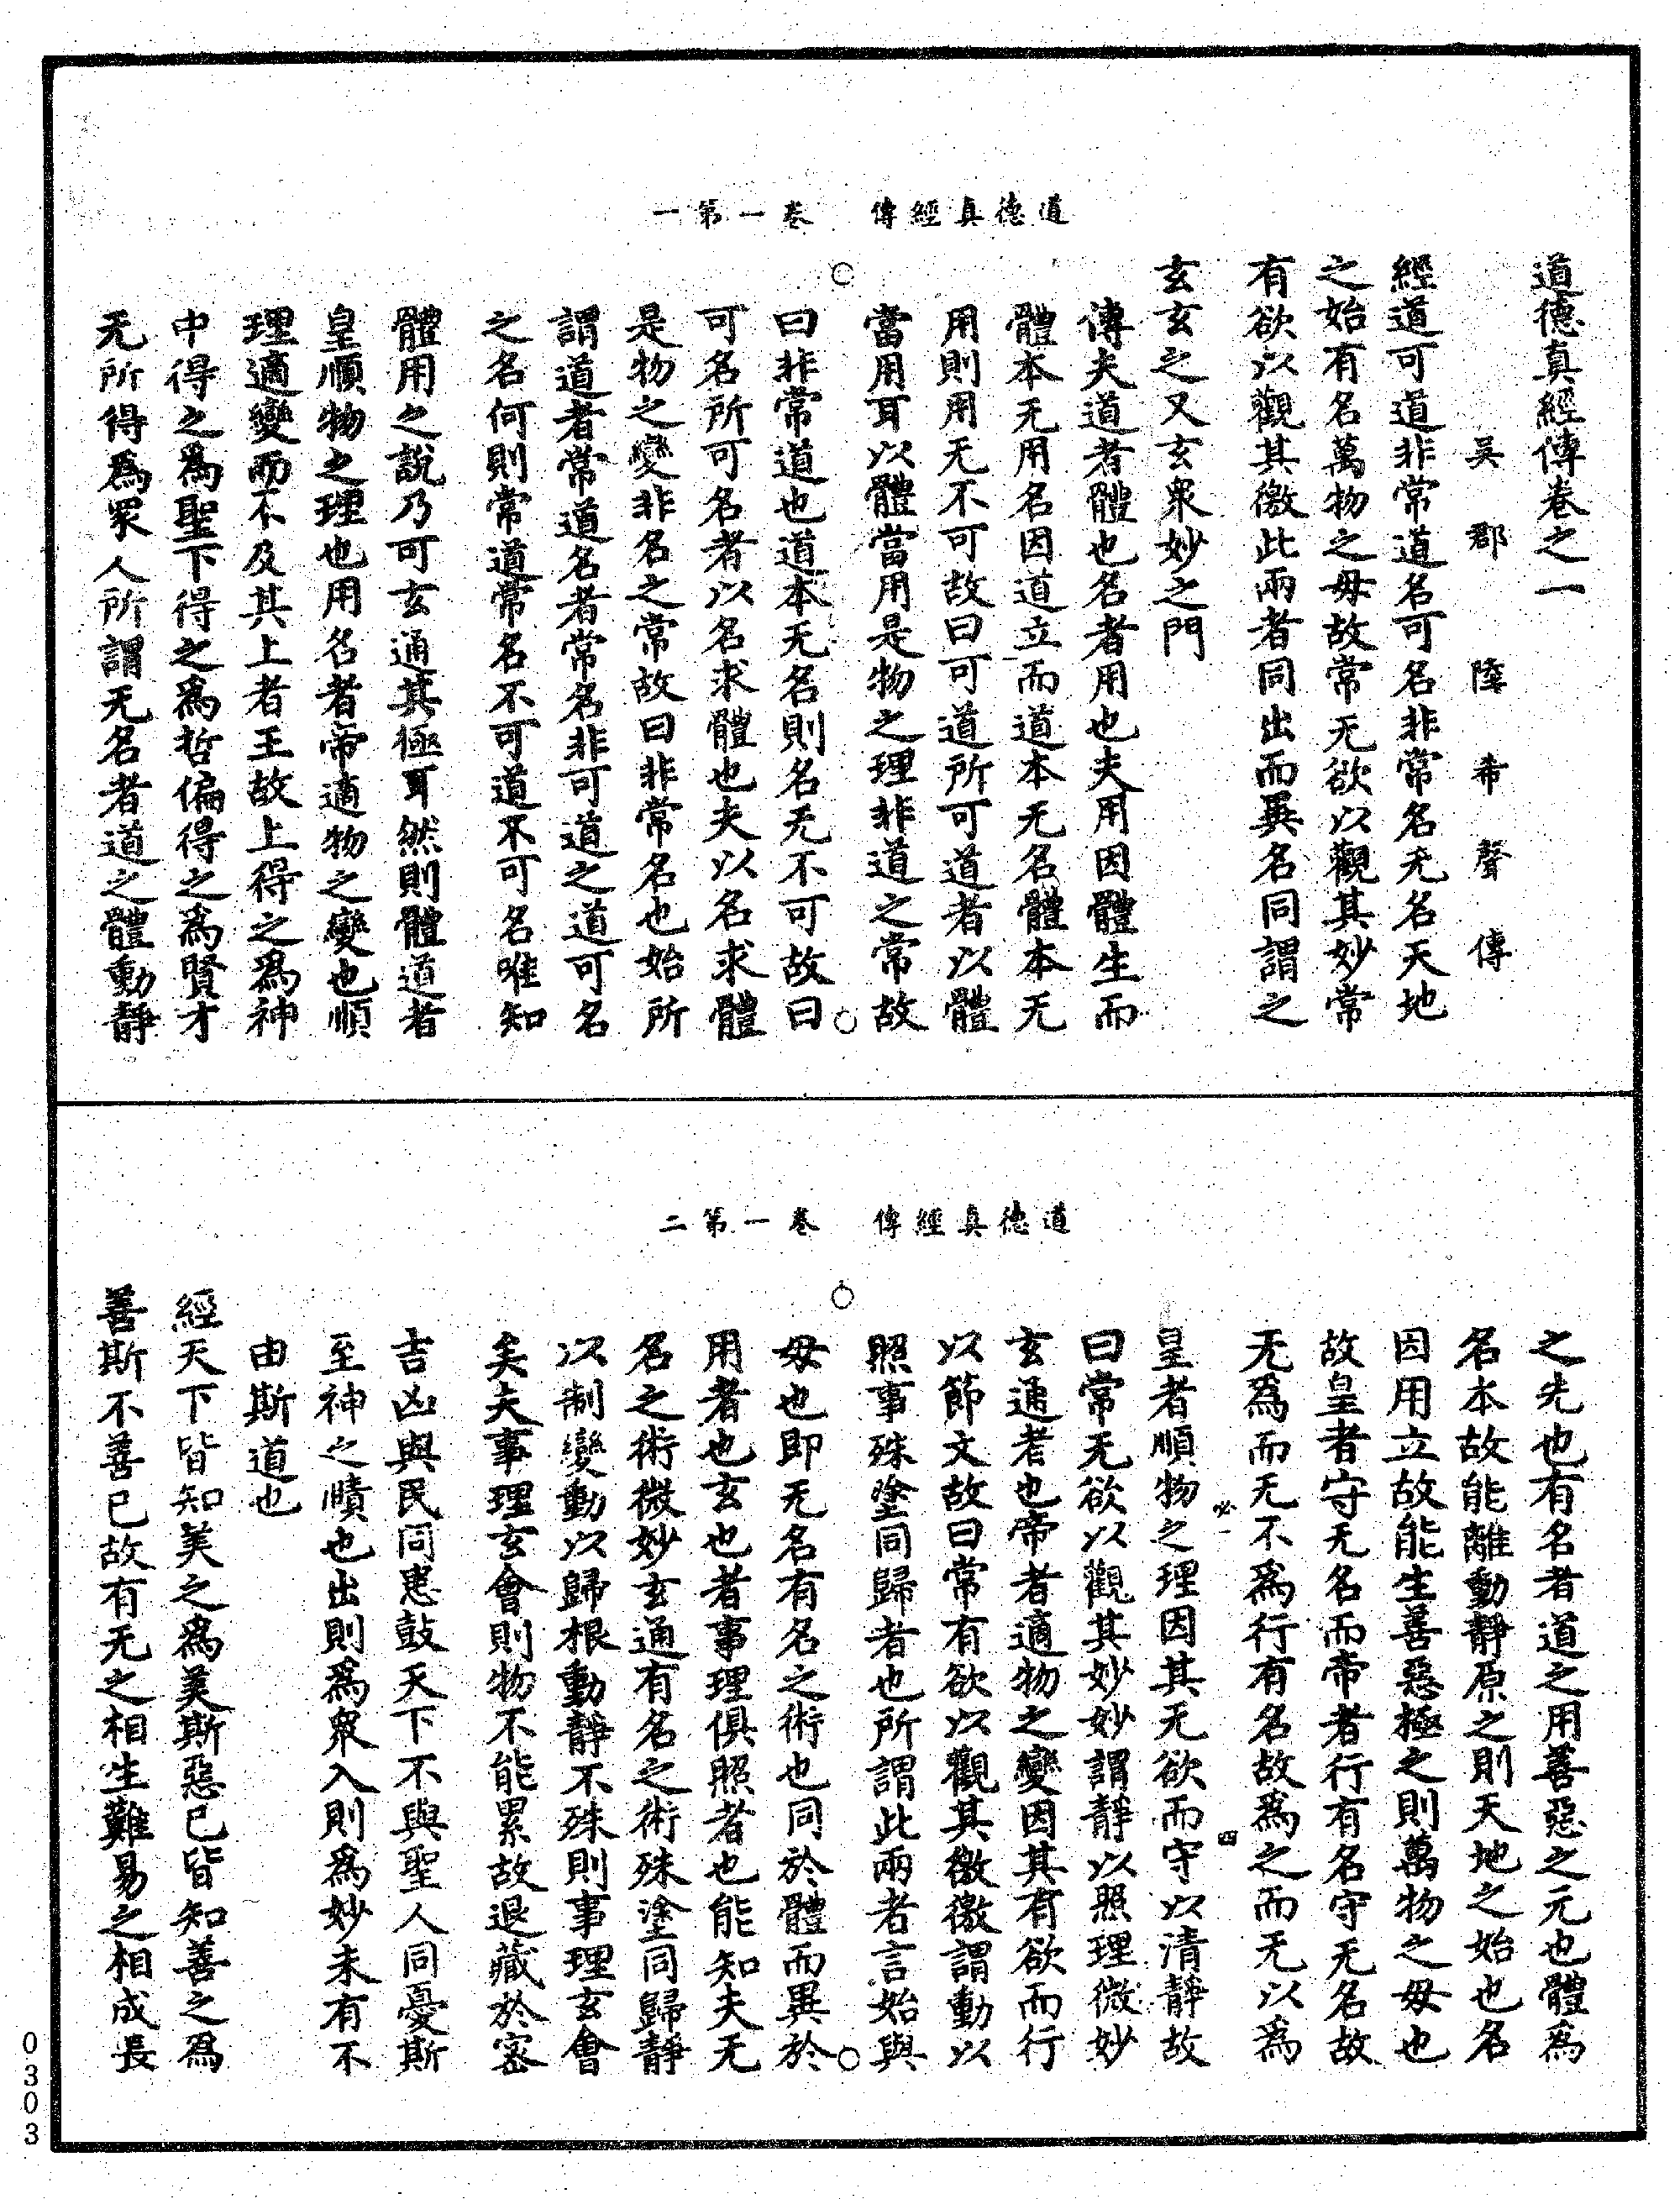 道德真經傳　卷一第一
道德真經傳卷之一
吳郡　陸希聲傳
經道可道非常道名可名非常名无名天地
之始有名萬物之母故常无欲以觀其妙常
有欲以觀其徼此兩者同出而異名同謂之
玄玄之又玄衆妙之門
傳夫道者體也名者用也夫用因體生而
體本无用名因道立而道本无名體本无
用則用无不可故曰可道所可道者以體
當用耳以體當用是物之理非道之常故
曰非常道也道本无名則名无不可故曰
可名所可名者以名求體也夫以名求體
是物之變非名之常故曰非常名也始所
謂道者常道名者常名非可道之道可名
之名何則常道常名不可道不可名唯知
體用之說乃可玄通其極耳然則體道者
皇順物之理也用名者帝適物之變也順
理適變而不及其上者王故上得之爲神
中得之爲聖下得之爲哲偏得之爲賢才
无所得爲衆人所謂无名者道之體動靜
道德真經傳　卷一第二
之先也有名者道之用善惡之元也體爲
名本故能離動靜原之則天地之始也名
因用立故能生善惡極之則萬物之母也
故皇者守无名而帝者行有名守无名故
无爲而无不爲行有名故爲之而无以爲
必一　四
皇者順物之理因其无欲而守以清靜故
曰常无欲以觀其妙妙謂靜以照理微妙
玄通者也帝者適物之變因其有欲而行
以節文故曰常有欲以觀其徼徼謂動以
照事殊塗同歸者也所謂此兩者言始與
母也即无名有名之術也同於體而異於
用者也玄也者事理俱照者也能知夫无
名之術微妙玄通有名之術殊塗同歸靜
以制變動以歸根動靜不殊則事理玄會
矣夫事理玄會則物不能累故退藏於密
吉凶與民同患鼓天下不與聖人同憂斯
至神之賾也出則爲衆入則爲妙未有不
由斯道也
經天下皆知美之爲美斯惡已皆知善之爲
善斯不善已故有无之相生難易之相成長
0303